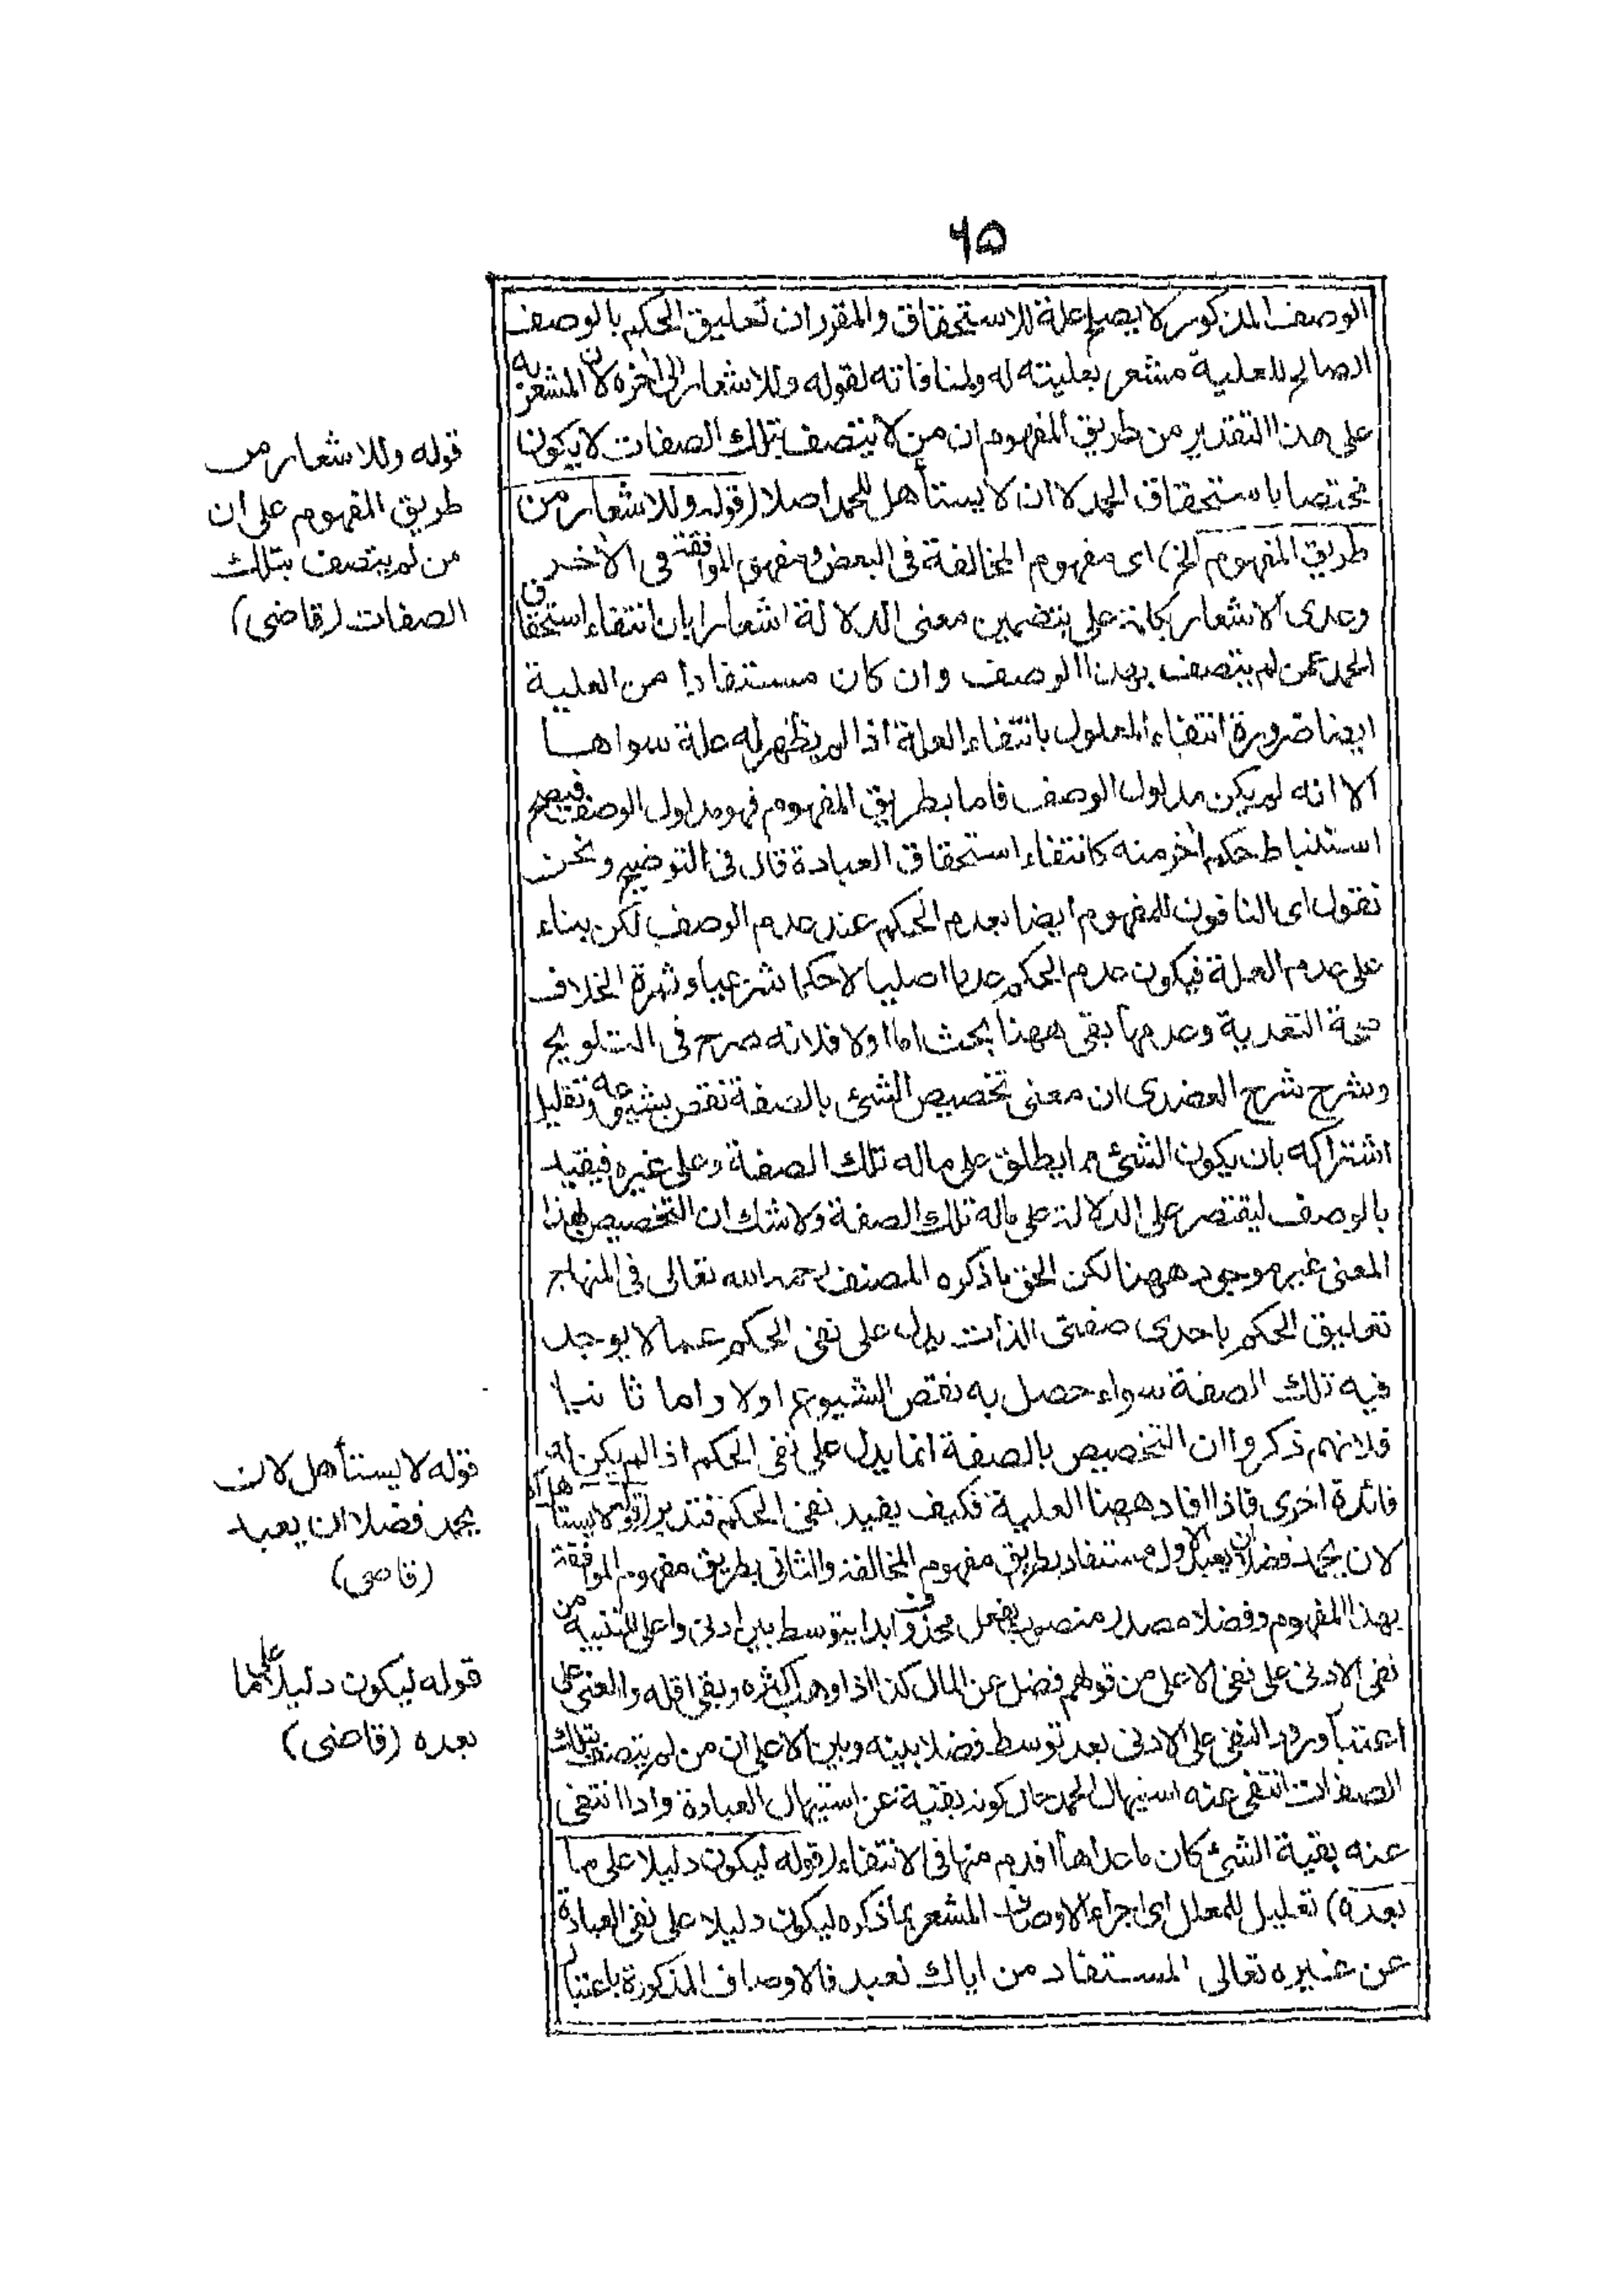 ٦٥
الوصف المذكور لا يصلح علة للاستحقاق والمقرر ان تعليق الحكم بالوصف
الصالح للعلية مشعر بعليته له ولمنافاته لقوله وللاشعار الى اخره لان المشعر به
على هذا التقدير من طريق المفهوم ان من لا يتصف بتلك الصفات لا يكون
مختصا باستحقاق الحمد لا ان لا يستأهل للحمد اصلا (قوله وللاشعار من
طريق المفهوم الخ) اى مفهوم المخالفة فى البعض ومفهوم الموافقة فى الآخر
وعدى الاشعار بكلمة على بتضمين معنى الدلالة اشعارا بان انتفاء استحقاق
الحمد عمن لم يتصف بهذا الوصف وان كان مستفادا من العلية
ايضا ضرورة انتفاء المعلول بانتفاء العلة اذا لم يظهر له علة سواها
الا انه لم يكن مدلول الوصف فاما بطريق المفهوم فهو مدلول الوصف فيصح
استنباط حكم اخر منه كانتفاء استحقاق العبادة قال فى التوضيح ونحن
نقول اى النافون للمفهوم ايضا بعدم الحكم عند عدم الوصف لكن بناء
على عدم العلة فيكون عدم الحكم عدما اصليا لا حكما شرعيا وثمرة الخلاف
صحة التعدية وعدمها بقى ههنا بحث اما اولا فلانه صرح فى التلويح
وشرح شرح العضدى ان معنى تخصيص الشئ بالصفة نقص شيوعه وتقليل
اشتراكه بان يكون الشئ مما يطلق على ماله تلك الصفة وعلى غيره فيقيد
بالوصف ليقتصر على الدلالة على ماله تلك الصفة ولا شك ان التخصيص بهذا
المعنى غير موجود ههنا لكن الحق ما ذكره المصنف رحمه الله تعالى فى المنهاج
تعليق الحكم باحدى صفتى الذات يدل على نفى الحكم عما لا يوجد
فيه تلك الصفة سواء حصل به نقص الشيوع اولا واما ثانيا
فلانهم ذكروا ان التخصيص بالصفة انما يدل على نفى الحكم اذا لم يكن له
فائدة اخرى فاذا افاد ههنا العلية فكيف يفيد نفى الحكم فتدبر (قوله لا يستأهل
لان يحمد فضلا ان يعبد) الاول مستفاد بطريق مفهوم المخالفة والثانى بطريق مفهوم الموافقة
بهذا المفهوم وفضلا مصدر منصوب بفعل محذوف ابدا يتوسط بين ادنى واعلى للتنبيه من
نفى الادنى على نفى الاعلى من قولهم فضل عن المال كذا اذا وهب اكثره وبقى اقله والمعنى على
اعتبار ورود النفى على الادنى بعد توسط فضلا بينه وبين الاعلى ان من لم يتصف بتلك
الصفات انتفى عنه استيهال الحمد حال كونه بقية عن استيهال العبادة واذا انتفى
عنه بقية الشئ كان ما عداها اقدم منها فى الانتفاء (قوله ليكون دليلا على ما
بعده) تعليل للمعلل اى اجراء الاوصاف المشعر بما ذكره ليكون دليلا على نفى العبادة
عن غيره تعالى المستفاد من اياك نعبد فالاوصاف المذكورة باعتبار
قوله وللاشعار من
طريق المفهوم على ان
من لم يتصف بتلك
الصفات (قاضى)
قوله لا يستأهل لان
يحمد فضلا ان يعبد
(قاضى)
قوله ليكون دليلا على ما
بعده (قاضى)